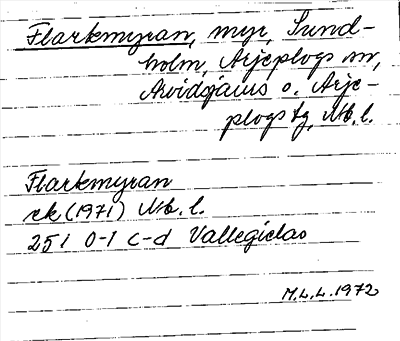 Flarkmyran, myr, Sund-
holm, Arjeplogs sn,
Arvidsjaurs o. Arje-
plogs tg, Nb. l.
Flarkmyran
ek (1971) Nb. l.
25 I 0-1 c-d Vallegielas
M.L.L. 1972